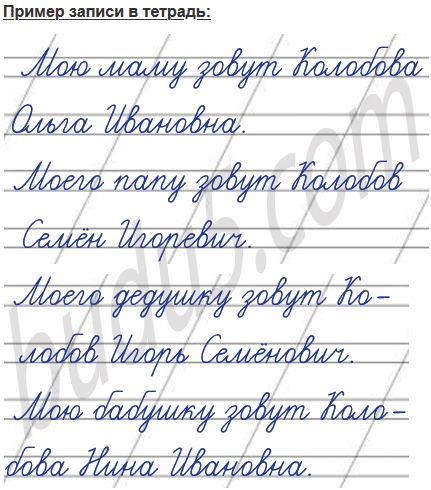 Пример записи в тетрадь:
Мою маму зовут Колобова
Ольга Ивановна.
Моего папу зовут Колобов
Семён Игоревич.
Моего дедушку зовут Ко-
лобов Игорь Семёнович.
Мою бабушку зовут Коло-
бова Нина Ивановна.
budu5.com